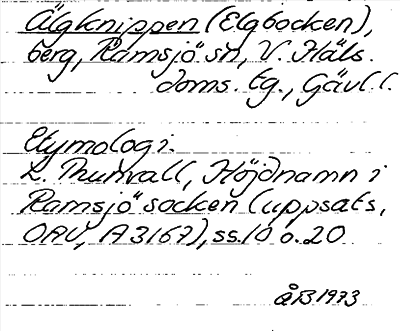 Älgknippen (Elgbocken),
berg, Ramsjö sn, V. Häls.
doms. tg., Gävl. l.
Etymologi:
L. Thunvall, Höjdnamn i
Ramsjö socken (uppsats,
OAU, A 3167), ss. 10 o. 20
ÅB 1973